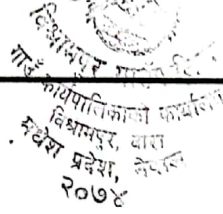 विश्रामपुर
गाउँ कार्यपालिकाको कार्यालय
विश्रामपुर, बारा
मधेश प्रदेश, नेपाल
२०७४